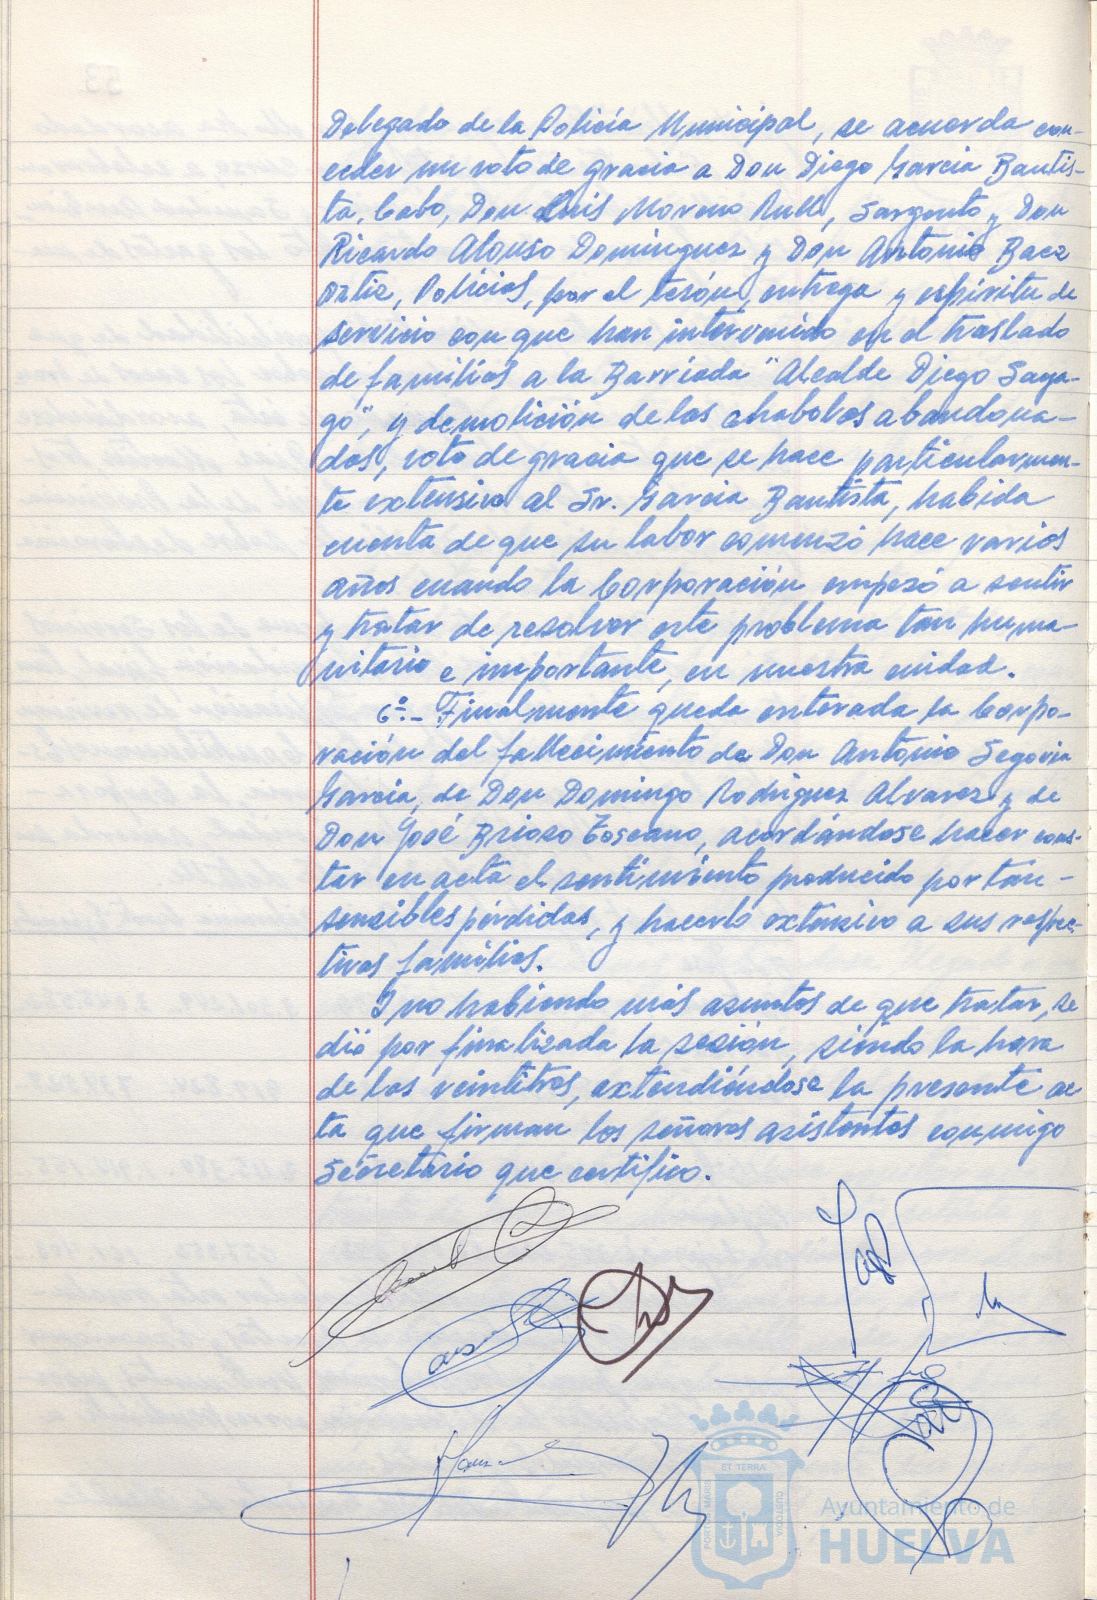 Delegado de la Policía Municipal, se acuerda con-
ceder un voto de gracia a Don Diego García Bautis-
ta, Cabo, Don Luis Moreno Rull, Sargento y Don
Ricardo Alonso Domínguez y Don Antonio Baez
Ortiz, Policías, por el tesón, entrega y espíritu de
servicio con que han intervenido en el traslado
de familias a la Barriada "Alcalde Diego Saya-
go", y demolición de las chabolas abandona-
das, voto de gracia que se hace particularmen-
te extensivo al Sr. García Bautista, habida
cuenta de que su labor comenzó hace varios
años cuando la Corporación empezó a sentir
y tratar de resolver este problema tan huma-
nitario e importante, en nuestra ciudad.
6º.- Finalmente queda enterada la Corpo-
ración del fallecimiento de Don Antonio Segovia
García, de Don Domingo Rodríguez Alvarez y de
Don José Brioso Toscano, acordándose hacer cons-
tar en acta el sentimiento producido por tan-
sensibles pérdidas, y hacerlo extensivo a sus respec-
tivas familias.
Y no habiendo más asuntos de que tratar, se
dió por finalizada la sesión, siendo la hora
de las veintitres, extendiéndose la presente ac-
ta que firman los señores asistentes conmigo
Secretario que certifico.
ET TERRA
PORTUS MARIS
CUSTODIA
Ayuntamiento de
HUELVA